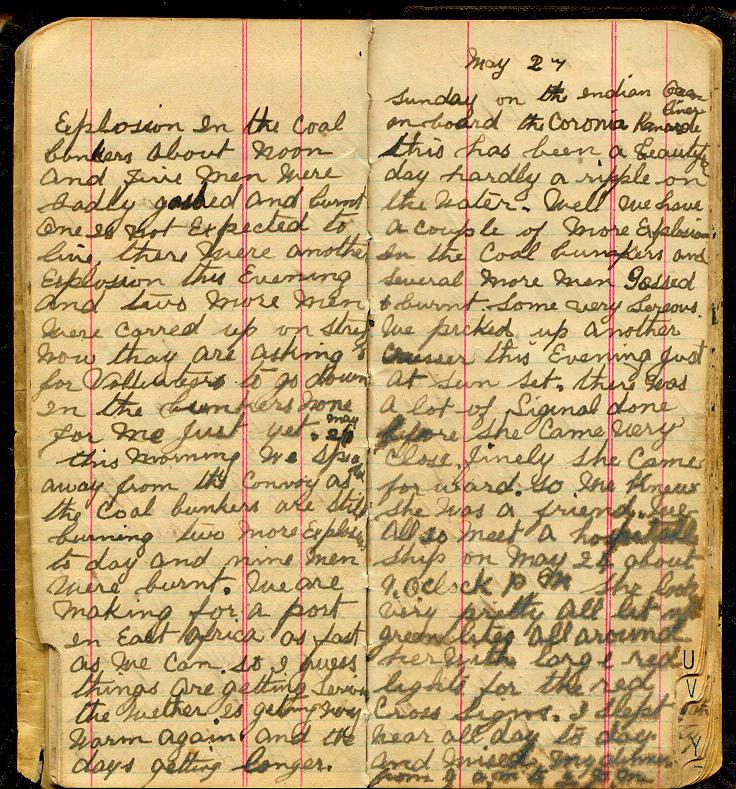 Explosion In the Coal
bunkers about noon
and five men were
badly gassed and burnt
one is not Expected to
live, there were another
Explosion this Evening
and two more men
were carred up on
now thay are asking
for Vollenters to go down
in the bunkers none
for me just yet. May 26
this morning we sped
away from the Convoy as
the Coal bunkers are still
burning two more Explosions
to day and nine men
were burnt. We are
making for a port
in East Africa as fast
as we can. so I guess
things are getting Serious
the wether is geting very
warm again. and the
days getting longer.
May 27
Sunday on the Indian Ocean
on board the Coronia Liner
this has been a Beauty
day hardly a ripple on
the water. Well we have
a couple of more Explosion
in the Coal bunkers and
several more men gassed
& burnt some very sereous
We picked up another
Crusser this Evening just
at sun set. there was
a lot of Siginal done
before she came very
close. finely she came
forward. so we knew
she was a friend. We
all so meet a hospitable
ship on May 24 about
9. Oclock P M she look
very pretty all lit
green lites all around
her with large red
lights for the red
Cross Signs. I slept
near all day to day
and mised my dinner
from 9 a.m to 2 P.M
U
V
Y